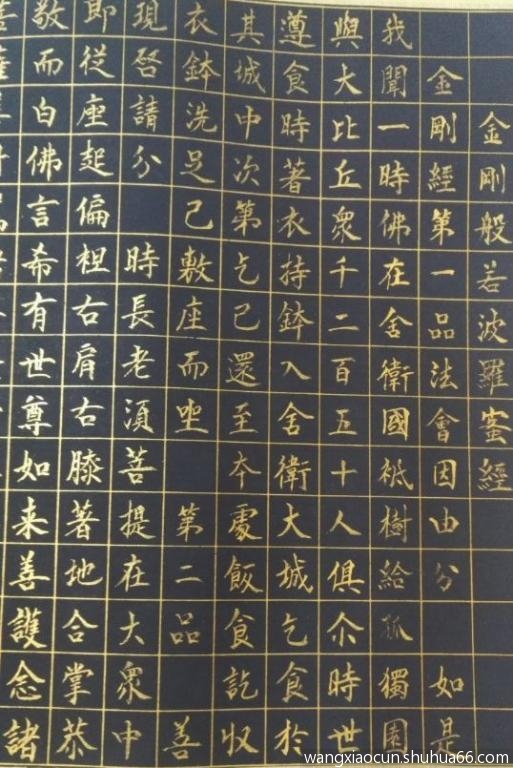 金剛般若波羅蜜經
金剛經第一品法會因由分 如是
我聞一時佛在舍衛國祇樹給孤獨園
與大比丘眾千二百五十人俱尒時世
遵食時著衣持鉢入舍衛大城乞食於
其城中次第乞已還至夲處飯食訖収
衣鉢洗足已敷座而坐 第二品 善
現啓請分 時長老湏菩提在大眾中
即從座起偏袒右肩右膝著地合掌恭
敬而白佛言希有世尊如来善護念諸
wangxiaocun.shuhua66.com